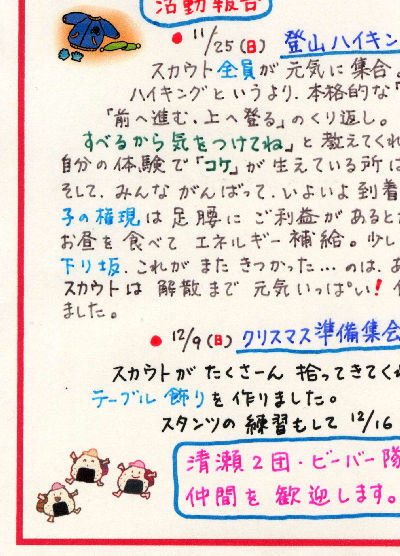 活動報告
11/25(日) 登山ハイキン
スカウト全員が元気に集合。
ハイキングというより、本格的な「
「前へ進む、上へ登る」のくり返し。
すべるから気をつけてね」と教えてくれ
自分の体験で「コケ」が生えている所は
そして、みんながんばって、いよいよ到着
子の権現は足腰にご利益があると
お昼を食べてエネルギー補給。少し
下り坂、これがまたきつかった…のは、あ
スカウトは解散まで元気いっぱい!
ました。
12/9(日) クリスマス準備集会
スカウトがたくさーん拾ってきてくれ
テーブル飾りを作りました。
スタンツの練習もして12/16
清瀬2団・ビーバー隊
仲間を歓迎します。